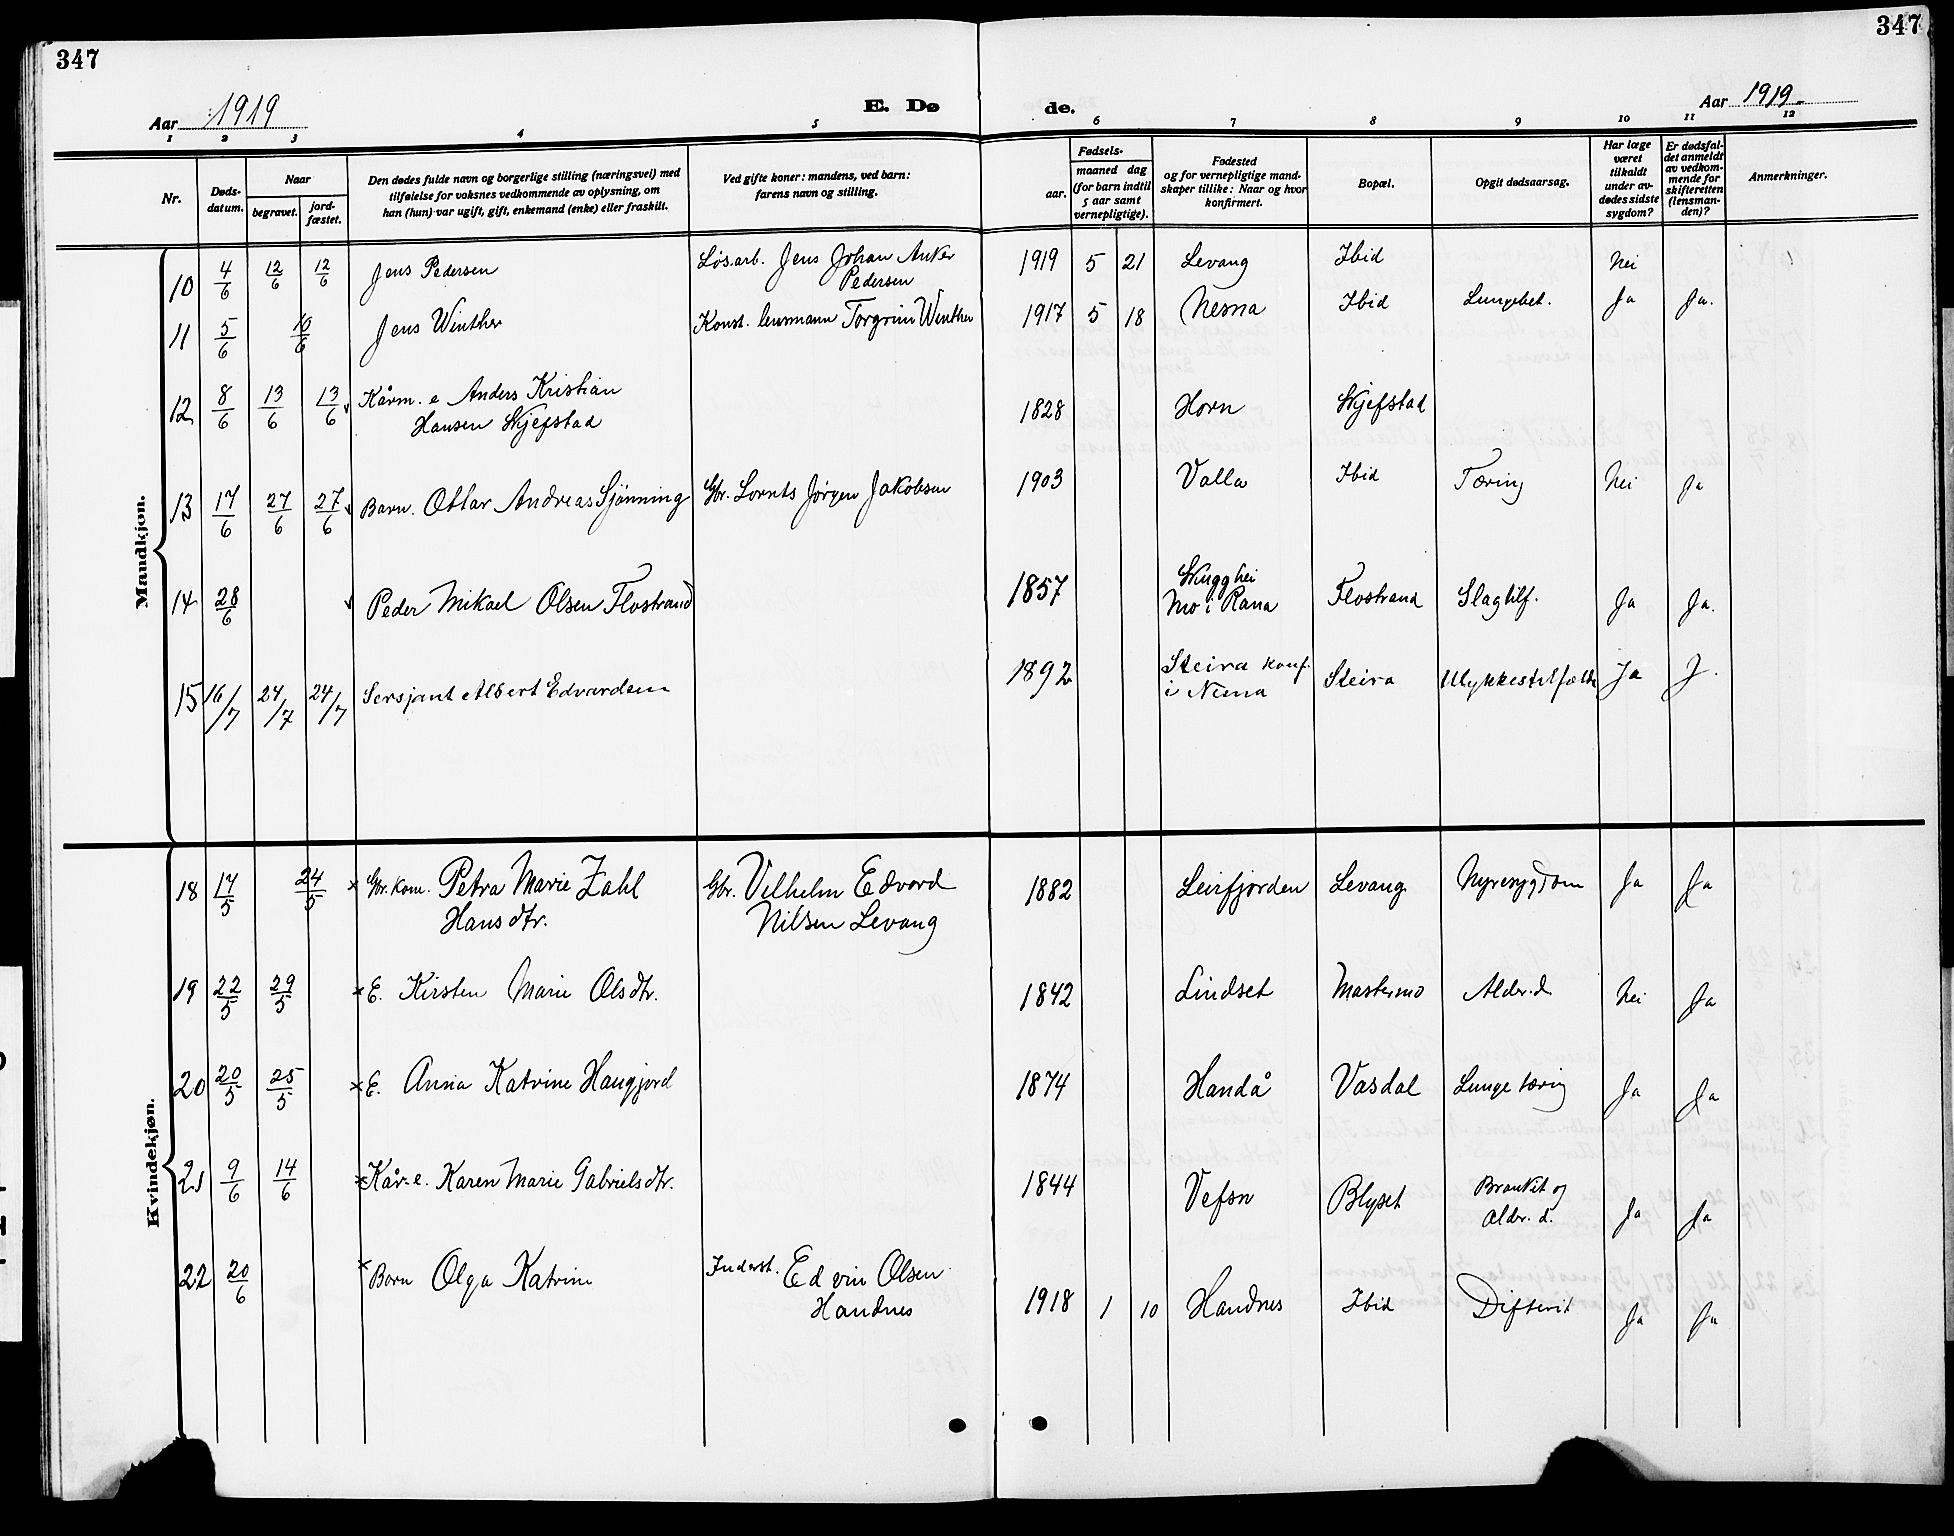 347
347
Aar 1919
E. Dø
de.
Aar 1919.
1 2 3 4 5 6 7 8 9 10 11 12
Nr.
Døds-
datum.
Naar
begravet.
jord-
fæstet.
Den dødes fulde navn og borgerlige stilling (næringsvei) med
tilføielse for voksnes vedkommende av oplysning, om
han (hun) var ugift, gift, enkemand (enke) eller fraskilt.
Ved gifte koner: mandens, ved barn:
farens navn og stilling.
Fødsels-
aar.
maaned dag
(for barn indtil
5 aar samt
vernepligtige).
Fødested
og for vernepligtige mand-
skaper tillike: Naar og hvor
konfirmert.
Bopæl.
Opgit dødsaarsag.
Har læge
været
tilkaldt
under av-
dødes sidste
sygdom?
Er dødsfal-
det anmeldt
av vedkom-
mende for
skifteretten
(lensman-
den)?
Anmerkninger.
Mandkjøn.
10 4/6 12/6 12/6 Jens Pedersen Løs.arb. Jens Johan Anker
Pedersen 1919 5 21 Levang Ibid Nei
11 5/6 10/6 Jens Winther Konst. lensmann Torgrim Winther 1917 5 18 Nesna Ibid Lungebet. Ja Ja.
12 8/6 13/6 13/6 Kårm. e Anders Kristian
Hansen Skjefstad 1828 Horn Skjefstad
13 17/6 27/6 27/6 Barn. Ottar Andreas Sjønning Gbr. Lornts Jørgen Jakobsen 1903 Valla Ibid Tæring Nei Ja
14 28/6 Peder Mikael Olsen Flostrand 1857 Skugghei
Mo i Rana Flostrand Slagtilf. Ja Ja.
15 16/7 24/7 24/7 Sersjant Albert Edvardsen 1892 Steira konf.
i Nesna Steira Ulykkestilfælde Ja J.
Kvindekjøn.
18 17/5 24/5 × Gbr. kone. Petra Marie Zahl
Hansdtr. Gbr. Vilhelm Edvard
Nilsen Levang 1882 Leirfjorden Levang Nyresygdom Ja Ja
19 22/5 29/5 × E. Kirsten Marie Olsdtr. 1842 Lindset Mastermo Alder.d. Nei Ja
20 20/5 25/5 × E. Anna Katrine Haugjord 1874 Handå Vasdal Lungetæring Ja Ja
21 9/6 14/6 × Kår. e. Karen Marie Gabrielsdtr. 1844 Vefsn Blyset Bronkit og
Alder. d. Ja Ja
22 20/6 × Barn Olga Katrine Inderst. Edvin Olsen
Handnes 1918 1 10 Handnes Ibid Difterit Ja Ja